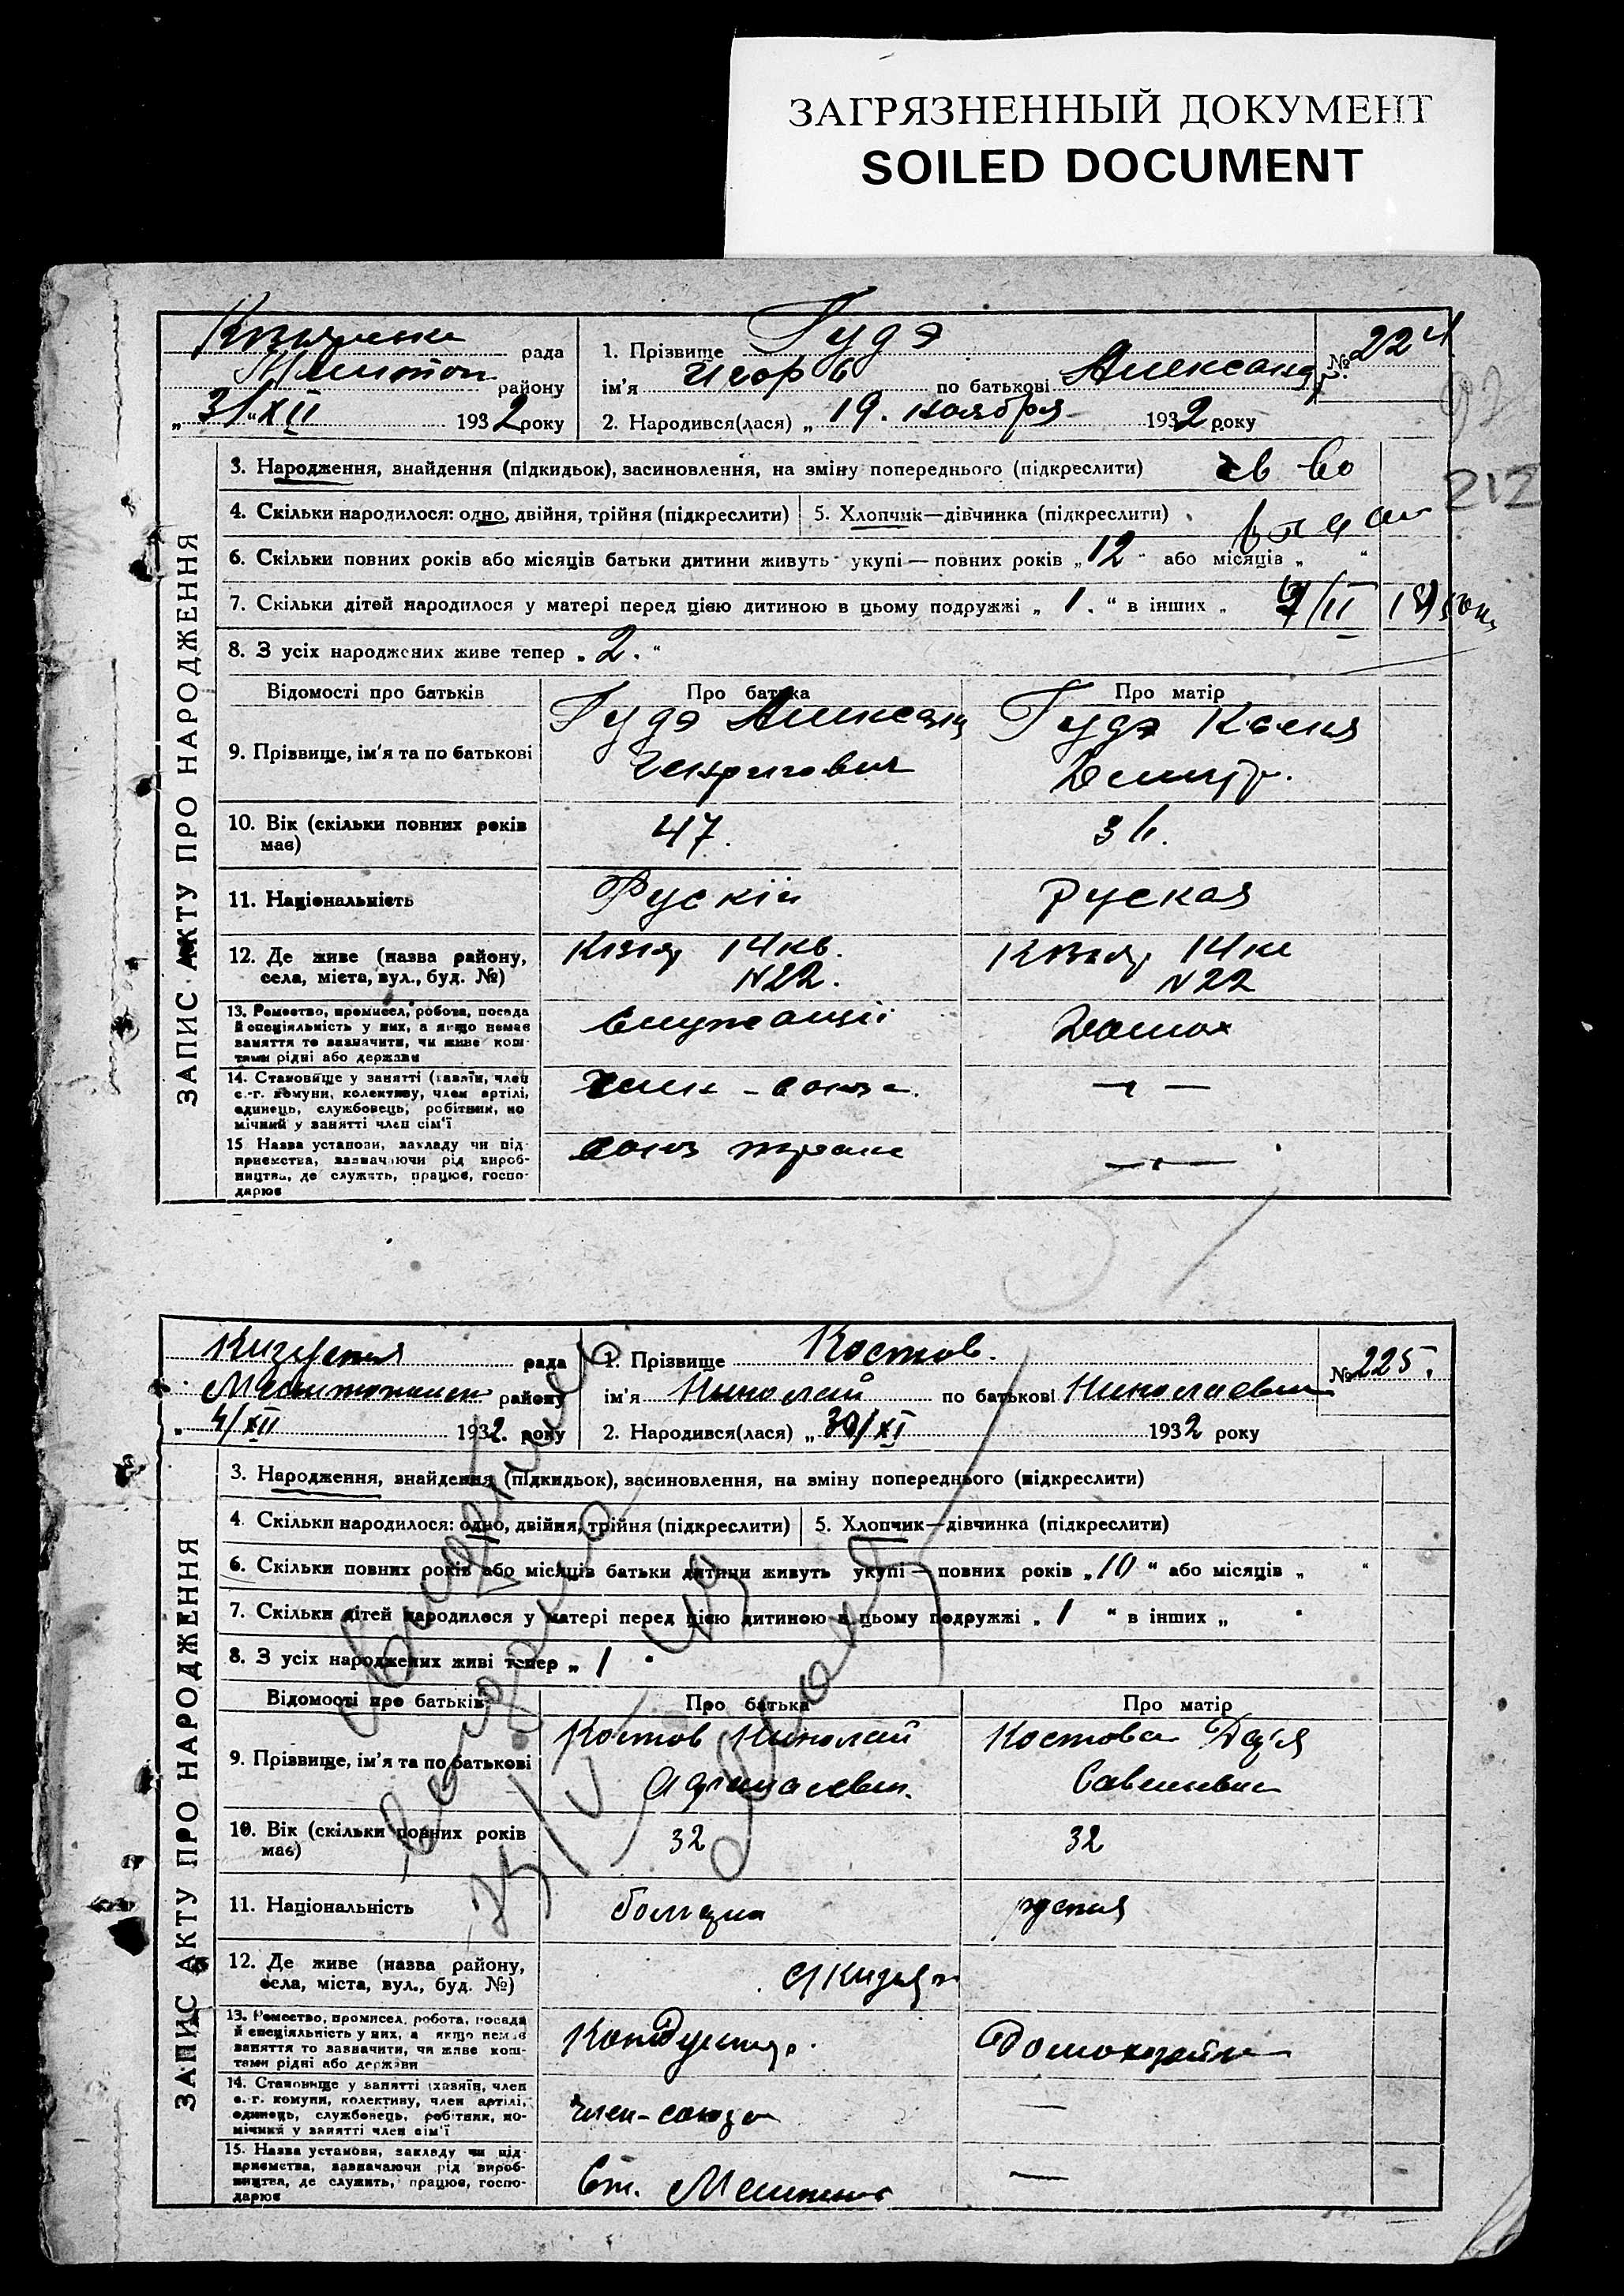 ЗАГРЯЗНЕННЫЙ ДОКУМЕНТ
SOILED DOCUMENT
рада
району
"31/XII 1932 року
1. Прізвище Гудэ
ім'я Игорь по батькові Александр.
2. Народився(лася) „19. ноября 1932 року
№ 224
212
ЗАПИС АКТУ ПРО НАРОДЖЕННЯ
3. Народження, внайдення (підкидьок), засиновлення, на зміну попереднього (підкреслити) св во
4. Скільки народилося: одно, двійня, трійня (підкреслити) 5. Хлопчик—дівчинка (підкреслити)
6. Скільки повних років або місяців батьки дитини живуть укупі — повних років „12" або місяців „ "
7. Скільки дітей народилося у матері перед цією дитиною в цьому подружжі „1." в інших „
8. З усіх народжених живе тепер „2."
Відомості про батьків Про батька Про матір
9. Прізвище, ім'я та по батькові
Гудэ Александ Гудэ Ксения
Генрихович Дмитр.
10. Вік (скільки повних років має) 47. 36.
11. Національність Рускій Руская
12. Де живе (назва району, села, міста, вул., буд. №)
Кизия, 14 кв. 14 кв
N 22. N 22
13. Ремество, промисел, робота, посада
й спеціяльність у них, а якщо немає
заняття то зазначити, чи живе кош-
тами рідні або держави
Служащій Домох
14. Становище у занятті (хазяїн, член
с.-г. комуни, колективу, член артілі,
одинець, службовець, робітник, по-
мічний у занятті член сім'ї
член - союза. —
15. Назва установи, закладу чи під-
приємства, зазначаючи рід вироб-
ництва, де служить, працює, госпо-
дарює
союз —
рада
району
" 4/XII 1932. року
1. Прізвище Костов.
ім'я Николай по батькові Николаевич
2. Народився(лася) „30/XI 1932 року
№ 225.
ЗАПИС АКТУ ПРО НАРОДЖЕННЯ
3. Народження, внайдення (підкидьок), засиновлення, на зміну попереднього (підкреслити)
4. Скільки народилося: одно, двійня, трійня (підкреслити) 5. Хлопчик—дівчинка (підкреслити)
6. Скільки повних років або місяців батьки дитини живуть укупі — повних років „10" або місяців „ "
7. Скільки дітей народилося у матері перед цією дитиною в цьому подружжі „1" в інших „ "
8. З усіх народжених живі тепер „1"
Відомості про батьків Про батька Про матір
9. Прізвище, ім'я та по батькові
Костов Николай Костова Дарья
Афанасьевич. Савельевна
10. Вік (скільки повних років має) 32 32
11. Національність болгарин руския
12. Де живе (назва району, села, міста, вул., буд. №)
13. Ремество, промисел, робота, посада
й спеціяльність у них, а якщо немає
заняття то зазначити, чи живе кош-
тами рідні або держави
Кондуктор. Домохозяйка
14. Становище у занятті (хазяїн, член
с.-г. комуни, колективу, член артілі,
одинець, службовець, робітник, по-
мічний у занятті член сім'ї
член-союза —
15. Назва установи, закладу чи під-
приємства, зазначаючи рід вироб-
ництва, де служить, працює, госпо-
дарює
Ст. —